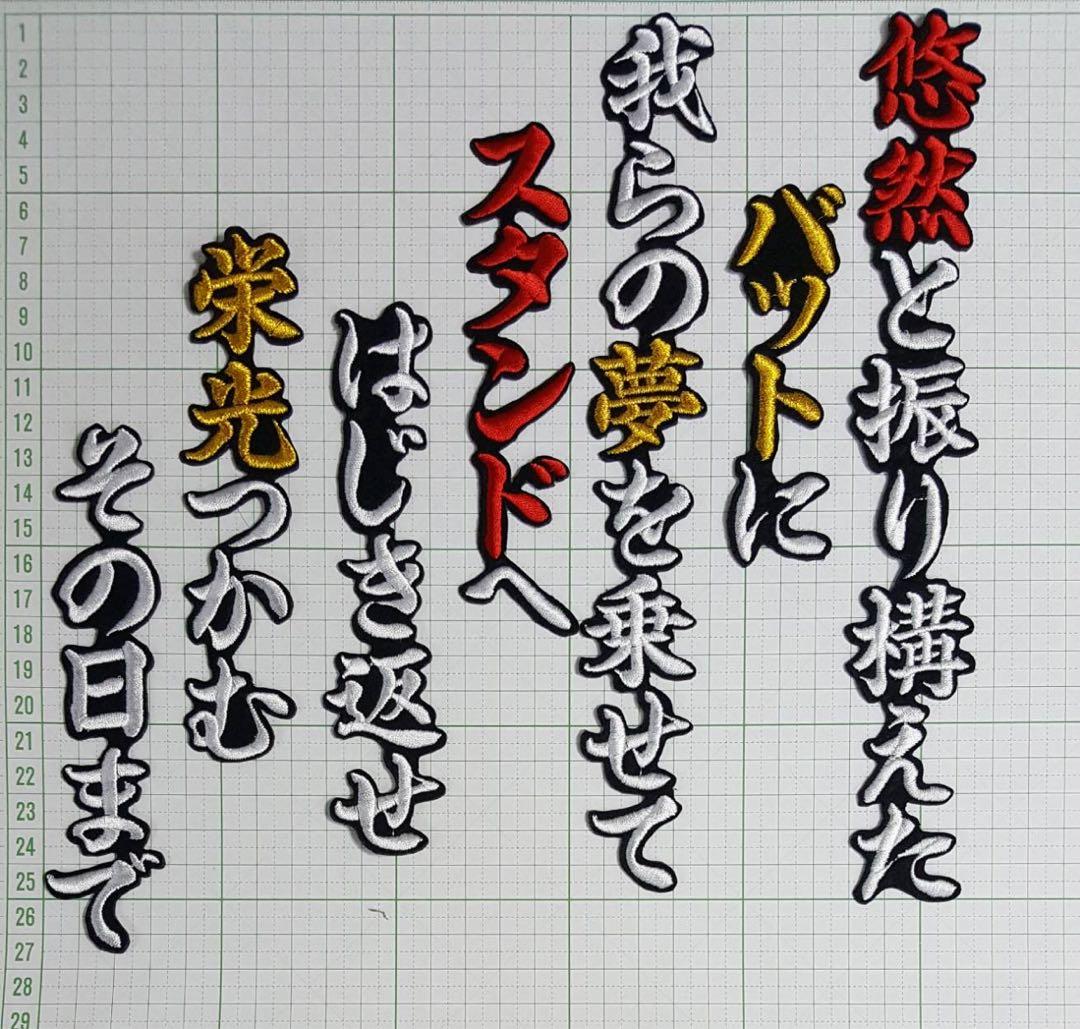 悠然と振り構えた
バットに
我らの夢を乗せて
スタンドへ
はじき返せ
栄光つかむ
その日まで
1
2
3
4
5
6
7
8
9
10
11
12
13
14
15
16
17
18
19
20
21
22
23
24
25
26
27
28
29